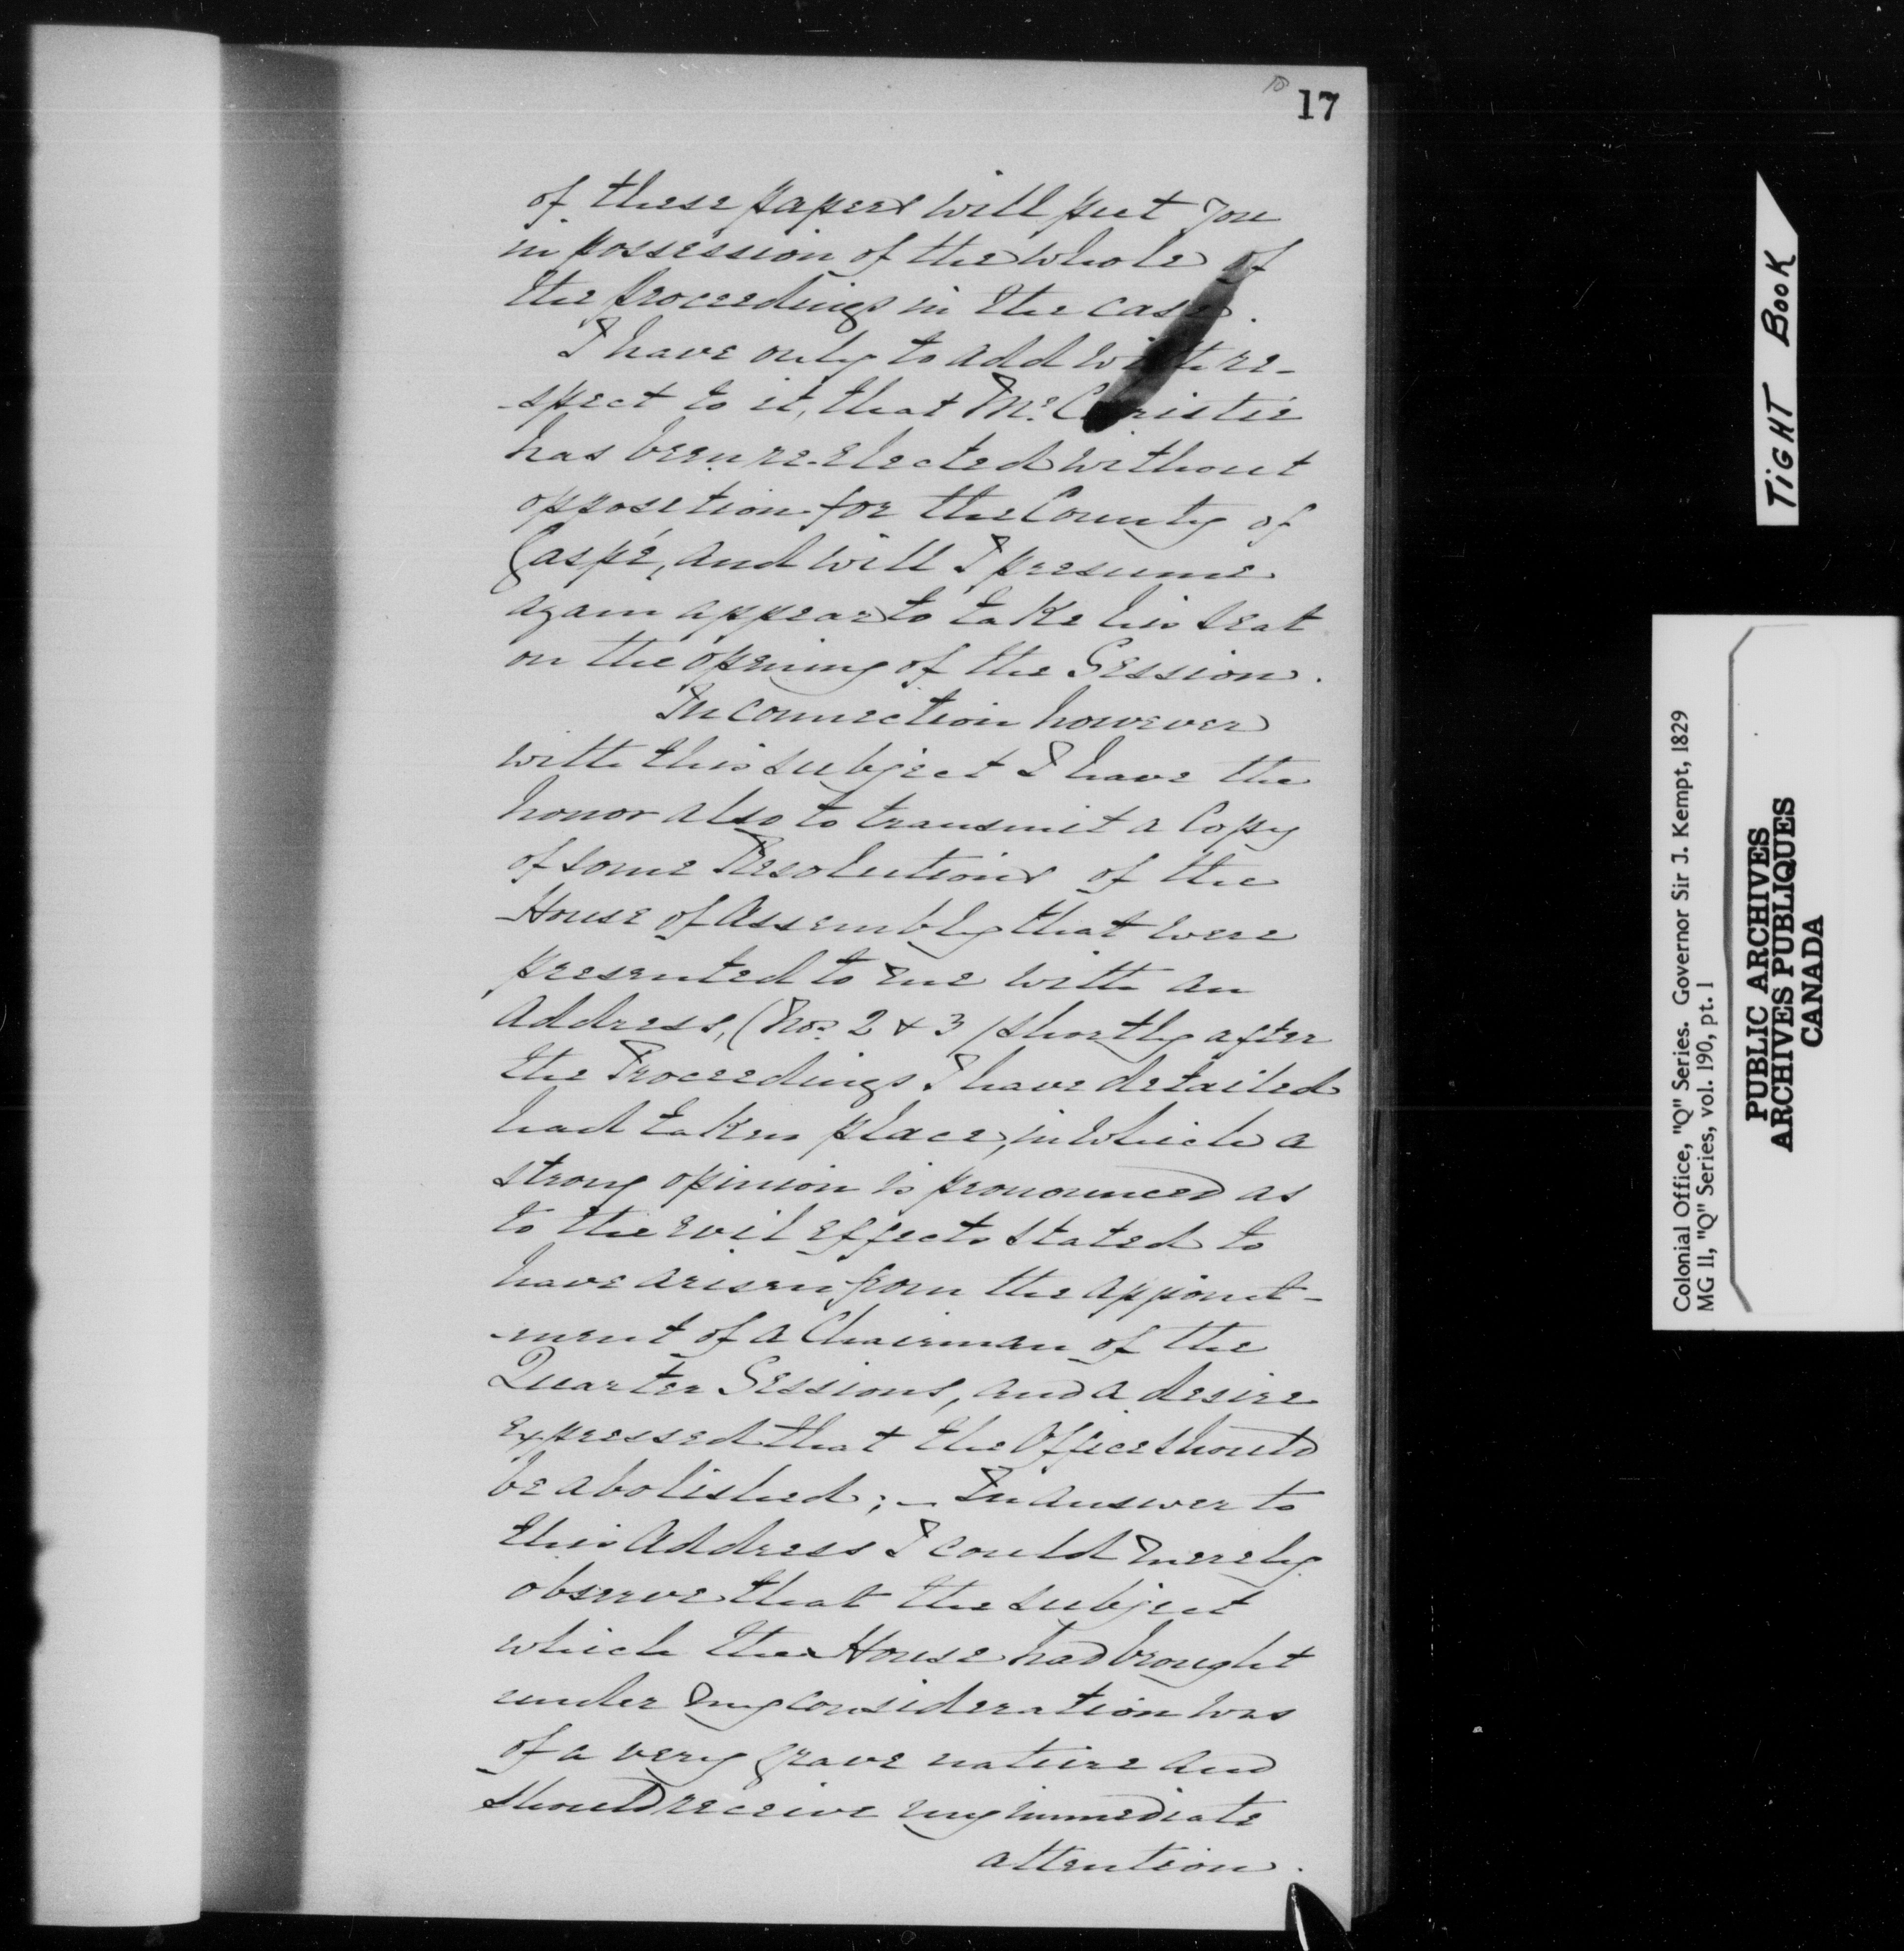 17
of these papers will put you
in possession of the whole of
the proceedings in the case.
I have only to add with re-
-spect to it, that Mr. Christie
has been re-elected without
opposition for the County of
Gaspé, and will I presume
again appear to take his seat
on the opening of the Session.
In connection however
with this subject I have the
honor also to transmit a Copy
of some Resolutions of the
House of Assembly that were
presented to me with an
Address, (Nos. 2 & 3) shortly after
the Proceedings I have detailed
had taken place, in which a
strong opinion is pronounced as
to the evil effects stated to
have arisen from the appoint-
-ment of a Chairman of the
Quarter Sessions, and a desire
expressed that the Office should
be abolished; – In answer to
this Address I could merely
observe that the subject
which the House had brought
under my consideration was
of a very grave nature and
should receive my immediate
attention.
TIGHT BOOK
Colonial Office, "Q" Series. Governor Sir J. Kempt, 1829
MG 11, "Q" Series, vol. 190, pt. 1
PUBLIC ARCHIVES
ARCHIVES PUBLIQUES
CANADA